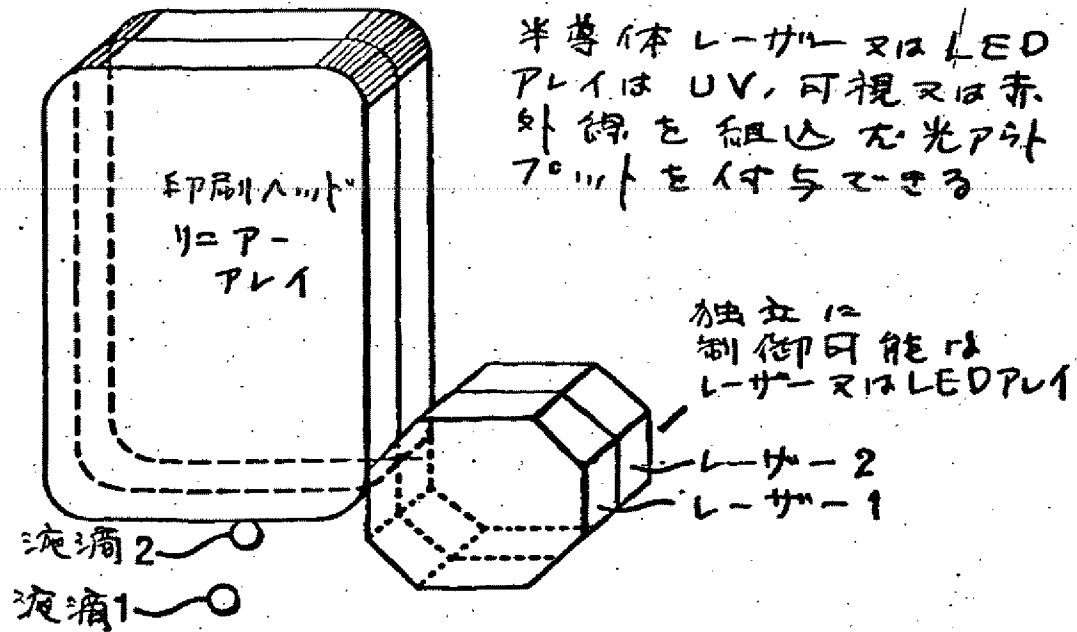 半導体レーザー又はLED
アレイはUV、可視又は赤
外線を組込だ光アウト
プットを付与できる
印刷ヘッド
リニアー
アレイ
独立に
制御可能な
レーザー又はLEDアレイ
レーザー2
レーザー1
液滴2
液滴1